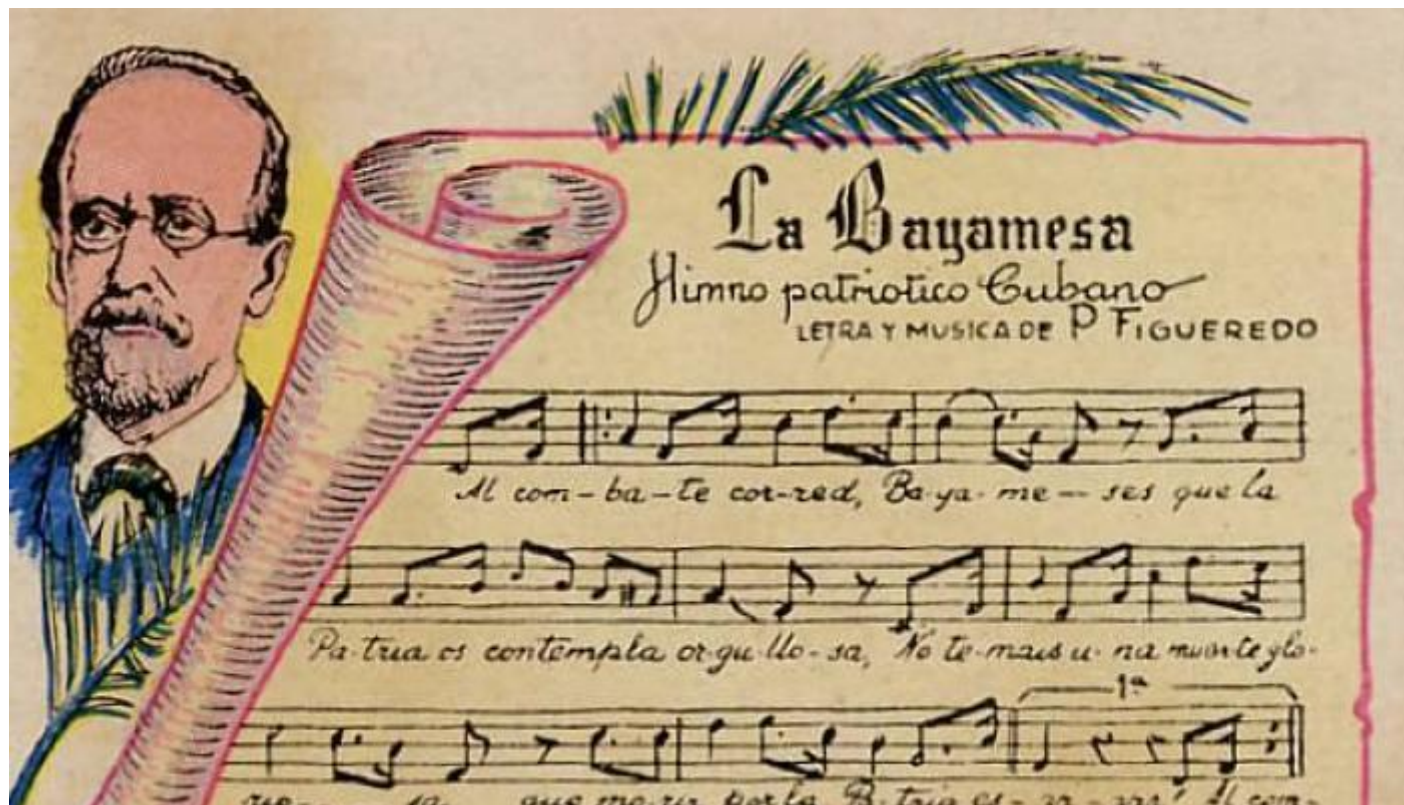 La Bayamesa
Himno patriotico Cubano
LETRA Y MUSICA DE P FIGUEREDO
Al com-ba-te cor-red, Ba-ya-me-ses que la
Pa-tria os contempla or-gu-llo-sa, No te-mais u-na muerte glo-
1ª
rio- sa que mo-rir por la Pa-tria es- Al com-